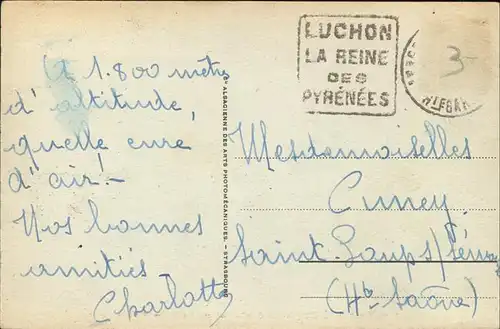 LUCHON
LA REINE
DES
PYRÉNÉES
3-
A 1.800 metres
d'altitude,
quelle cure
d'air! -
Nos bonnes
amitiés -
Charlotte
Cie ALSACIENNE DES ARTS PHOTOMÉCANIQUES - STRASBOURG
Mesdemoiselles
Cuney
Saint-Loup s/
(Hte Saône)